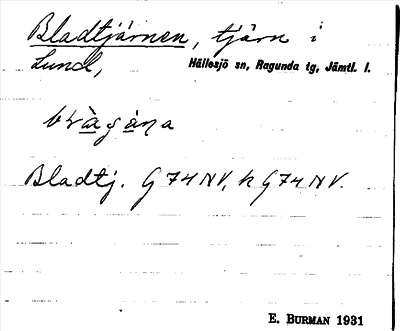 Bladtjärnen, tjärn i
Lund, Hällesjö sn, Ragunda tg, Jämtl. l.
Bladtj. G74NV, k G74NV.
E. BURMAN 1931